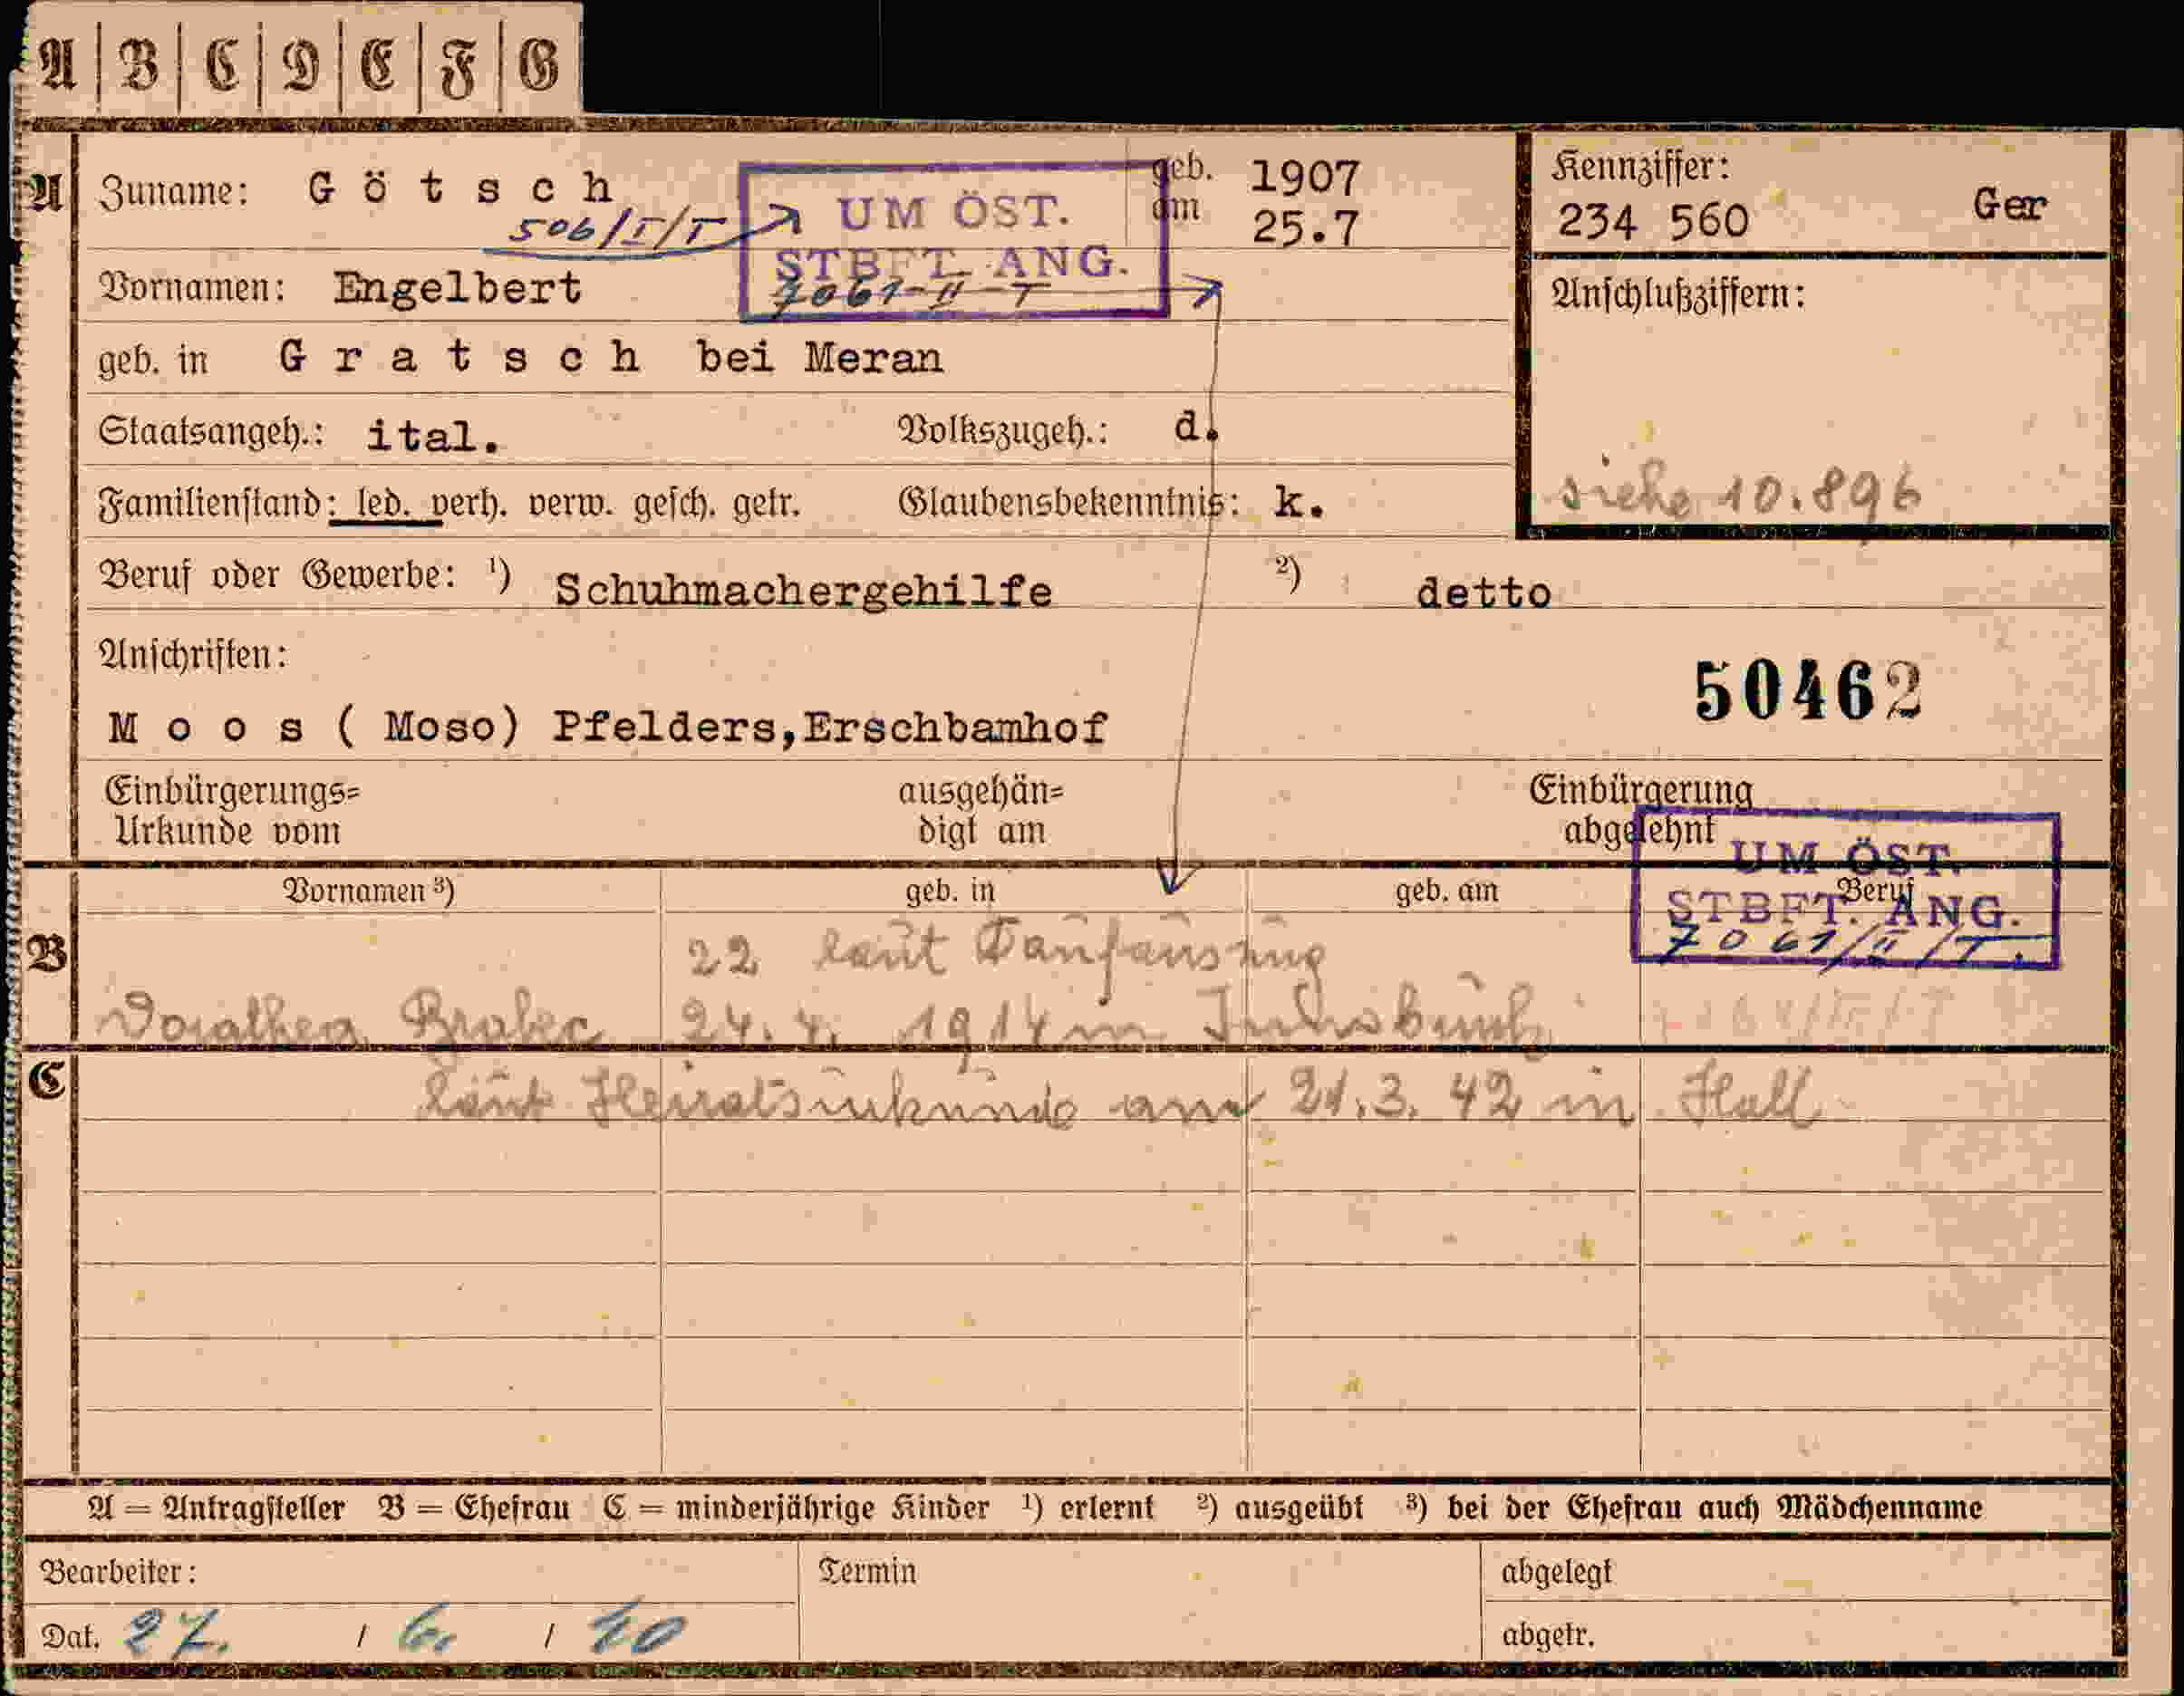 A | B | C | D | E | F | G
A Zuname: G ö t s c h geb. am 1907 25.7
506/I/T
UM ÖST.
STBFT. ANG.
7061-II-T
Kennziffer:
234 560 Ger
Vornamen: Engelbert
Anschlußziffern:
geb. in G r a t s c h bei Meran
Staatsangeh.: ital. Volkszugeh.: d.
siehe 10.896
Familienstand: led. verh. verw. gesch. getr. Glaubensbekenntnis: k.
Beruf oder Gewerbe: ¹) Schuhmachergehilfe ²) detto
Anschriften:
50462
M o o s ( Moso) Pfelders,Erschbamhof
Einbürgerungs= ausgehän= Einbürgerung
Urkunde vom digt am abgelehnt
UM ÖST.
STBFT. ANG.
7061/II/T.
Vornamen ³) geb. in geb. am Beruf
B
22 laut
24. 4. 1914 in Innsbruck
C
laut Heiratsurkunde am 21.3. 42 in Hall
A = Antragsteller B = Ehefrau C = minderjährige Kinder ¹) erlernt ²) ausgeübt ³) bei der Ehefrau auch Mädchenname
Bearbeiter: Termin abgelegt
Dat. 27. / 6. / 40 abgetr.